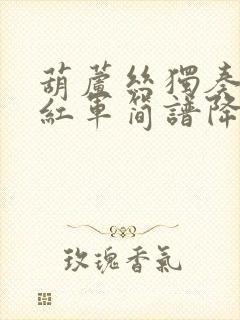 葫蘆絲獨奏
紅軍簡譜降
玫瑰香氣